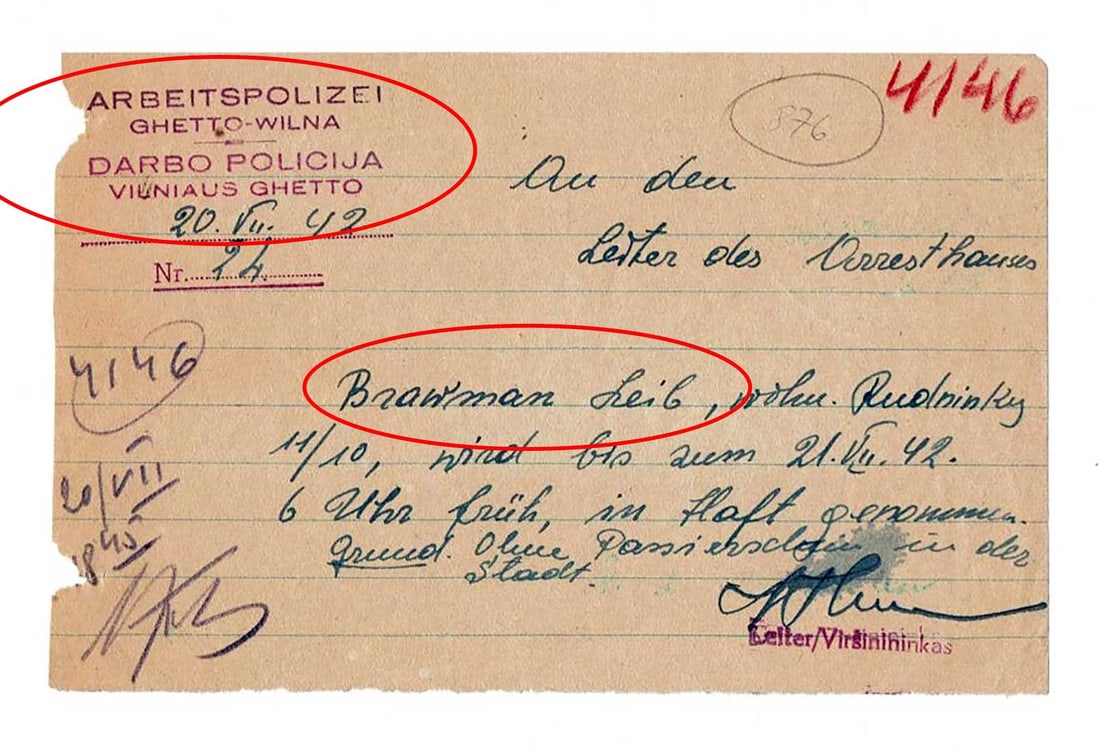 ARBEITSPOLIZEI
GHETTO-WILNA
DARBO POLICIJA
VILNIAUS GHETTO
20. VII. 42
Nr. 24
4146
376
An den
Leiter des Arresthauses
4146
20/VII
18 45
Brawman Leib, wohn. Rudninky
11/10, wird bis zum 21. VII. 42.
6 Uhr früh, in Haft genommen.
Grund. Ohne Passierschein in der
Stadt.
Leiter/Viršinininkas